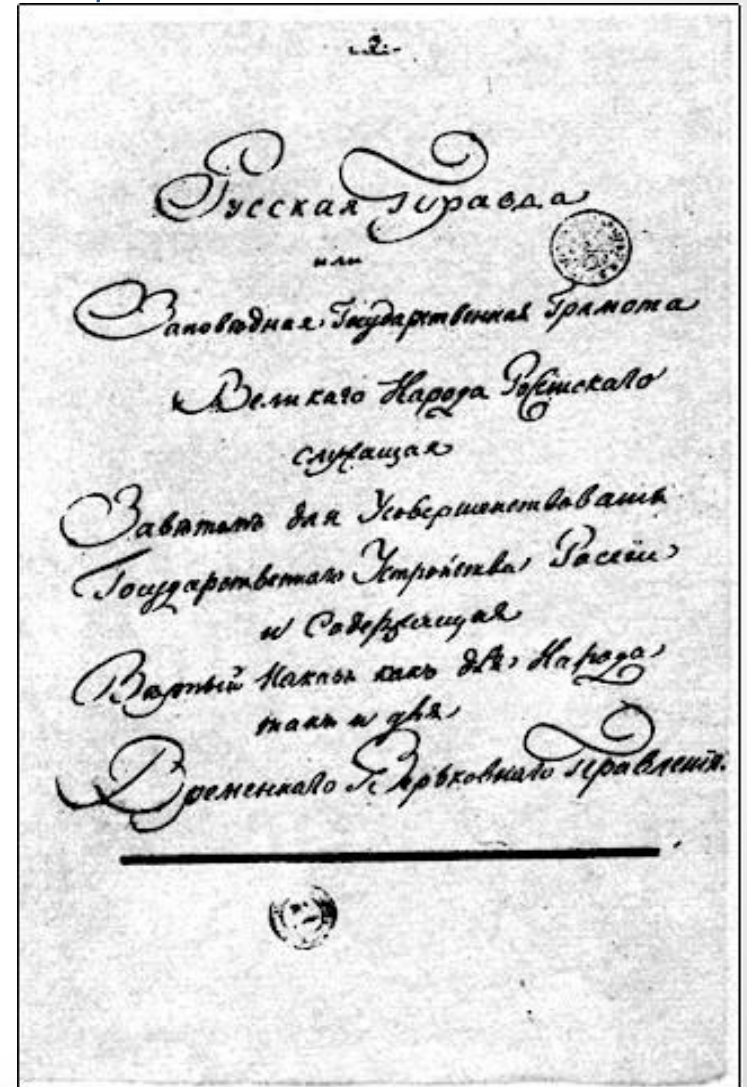 -2-
Русская Правда
или
Заповѣдная Государственная Грамота
Великаго Народа Россійскаго
служащая
Завѣтомъ для Усовершенствованія
Государственнаго Устройства Россіи
и Содержащая
Вѣрный Наказъ какъ для Народа
такъ и для
Временнаго Верьховнаго Правленія.